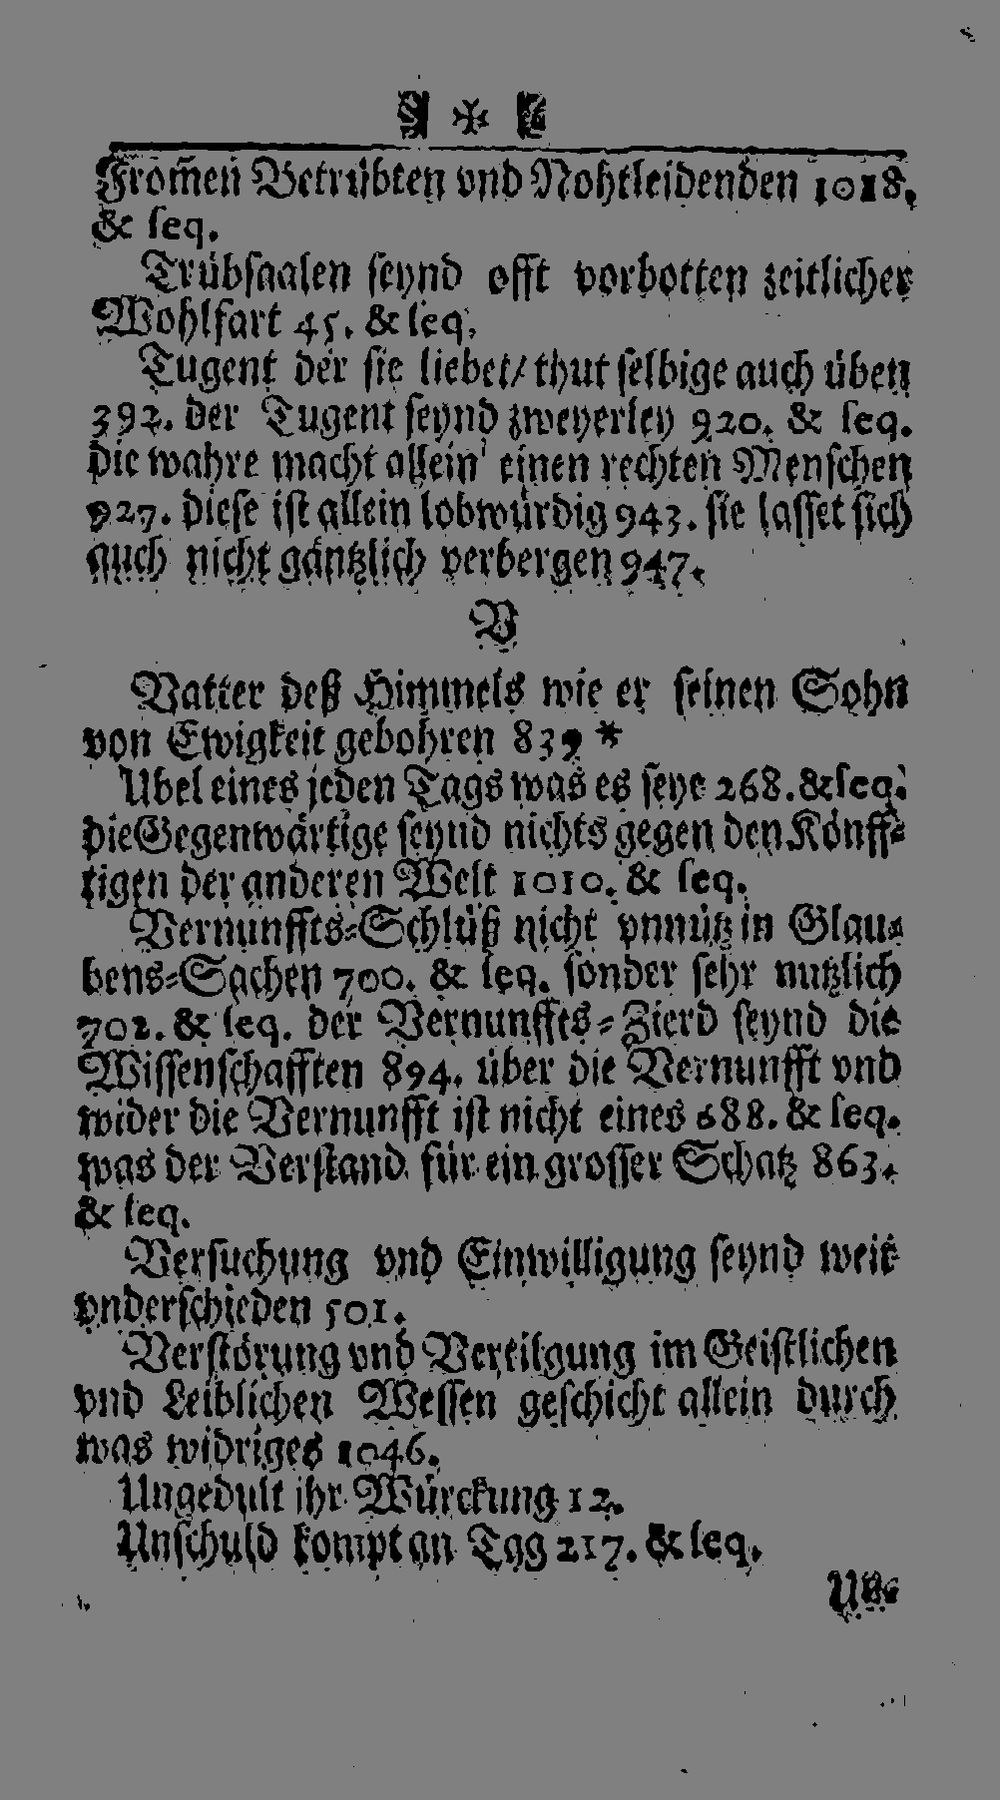 From̃en Betrübten vnd Nohtleidenden 1018.
& seq.
Trübsaalen seynd offt vorbotten zeitlicher
Wohlfart 45. & seq.
Tugent der sie liebet/ thut selbige auch üben
392. der Tugent seynd zweyerley 920. & seq.
die wahre macht allein einen rechten Menschen
927. diese ist allein lobwürdig 943. sie lasset sich
auch nicht gäntzlich verbergen 947.
V
Vatter deß Himmels wie er seinen Sohn
von Ewigkeit gebohren 839 *
Ubel eines jeden Tags was es seye 268. & seq.
die Gegenwärtige seynd nichts gegen den Könff-
tigen der anderen Welt 1010. & seq.
Vernunffts-Schlüß nicht vnnütz in Glau-
bens-Sachen 700. & seq. sonder sehr nutzlich
702. & seq. der Vernunffts-Zierd seynd die
Wissenschafften 894. über die Vernunfft vnd
wider die Vernunfft ist nicht eines 688. & seq.
was der Verstand für ein grosser Schatz 863.
& seq.
Versuchung vnd Einwilligung seynd weit
vnderschieden 501.
Verstörung vnd Vertilgung im Geistlichen
vnd Leiblichen Wessen geschicht allein durch
was widriges 1046.
Ungedult ihr Würckung 12.
Unschuld kompt an Tag 217. & seq.